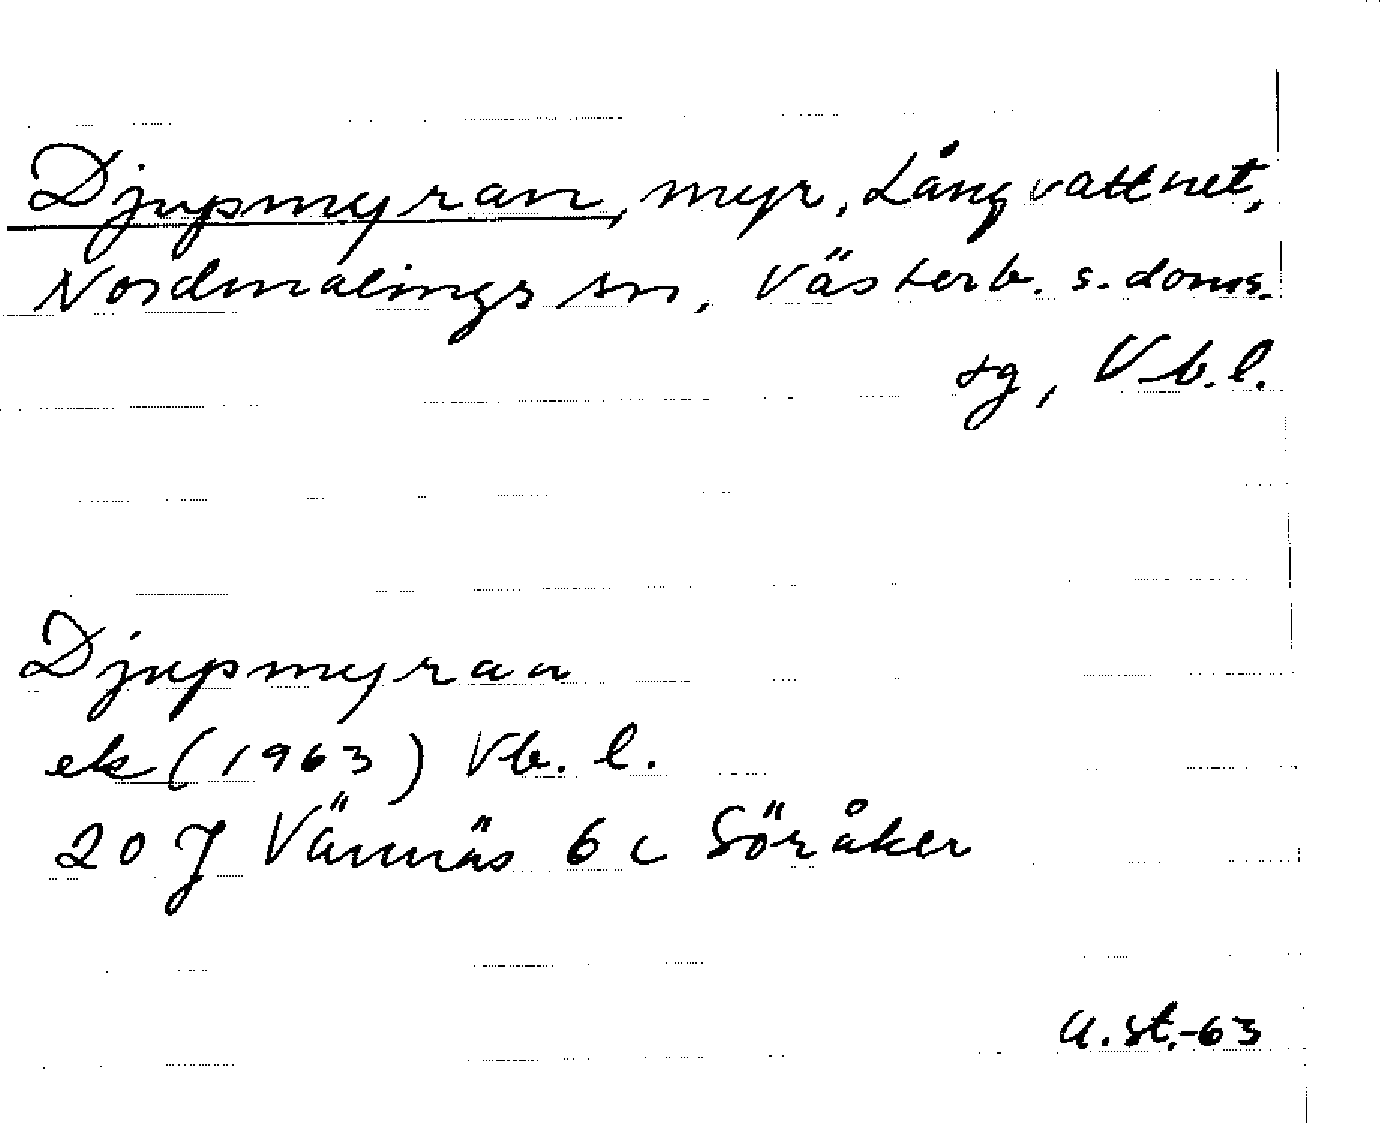 Djupmyran, myr, Långvattnet,
Nordmalings sn, Västerb. s. doms.
sg, Vb.l.
Djupmyran
ek (1963) Vb. l.
20 J Vännäs 6 c Söråker
U. St.-63